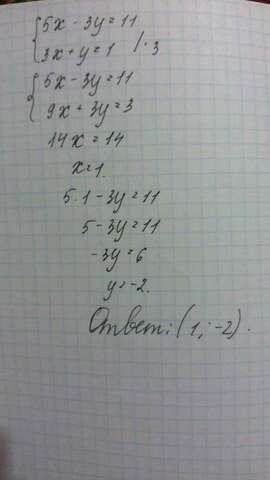 5x - 3y = 11
3x + y = 1 / · 3
5x - 3y = 11
9x + 3y = 3
14x = 14
x = 1.
5 · 1 - 3y = 11
5 - 3y = 11
-3y = 6
y = -2.
Ответ: (1; -2).